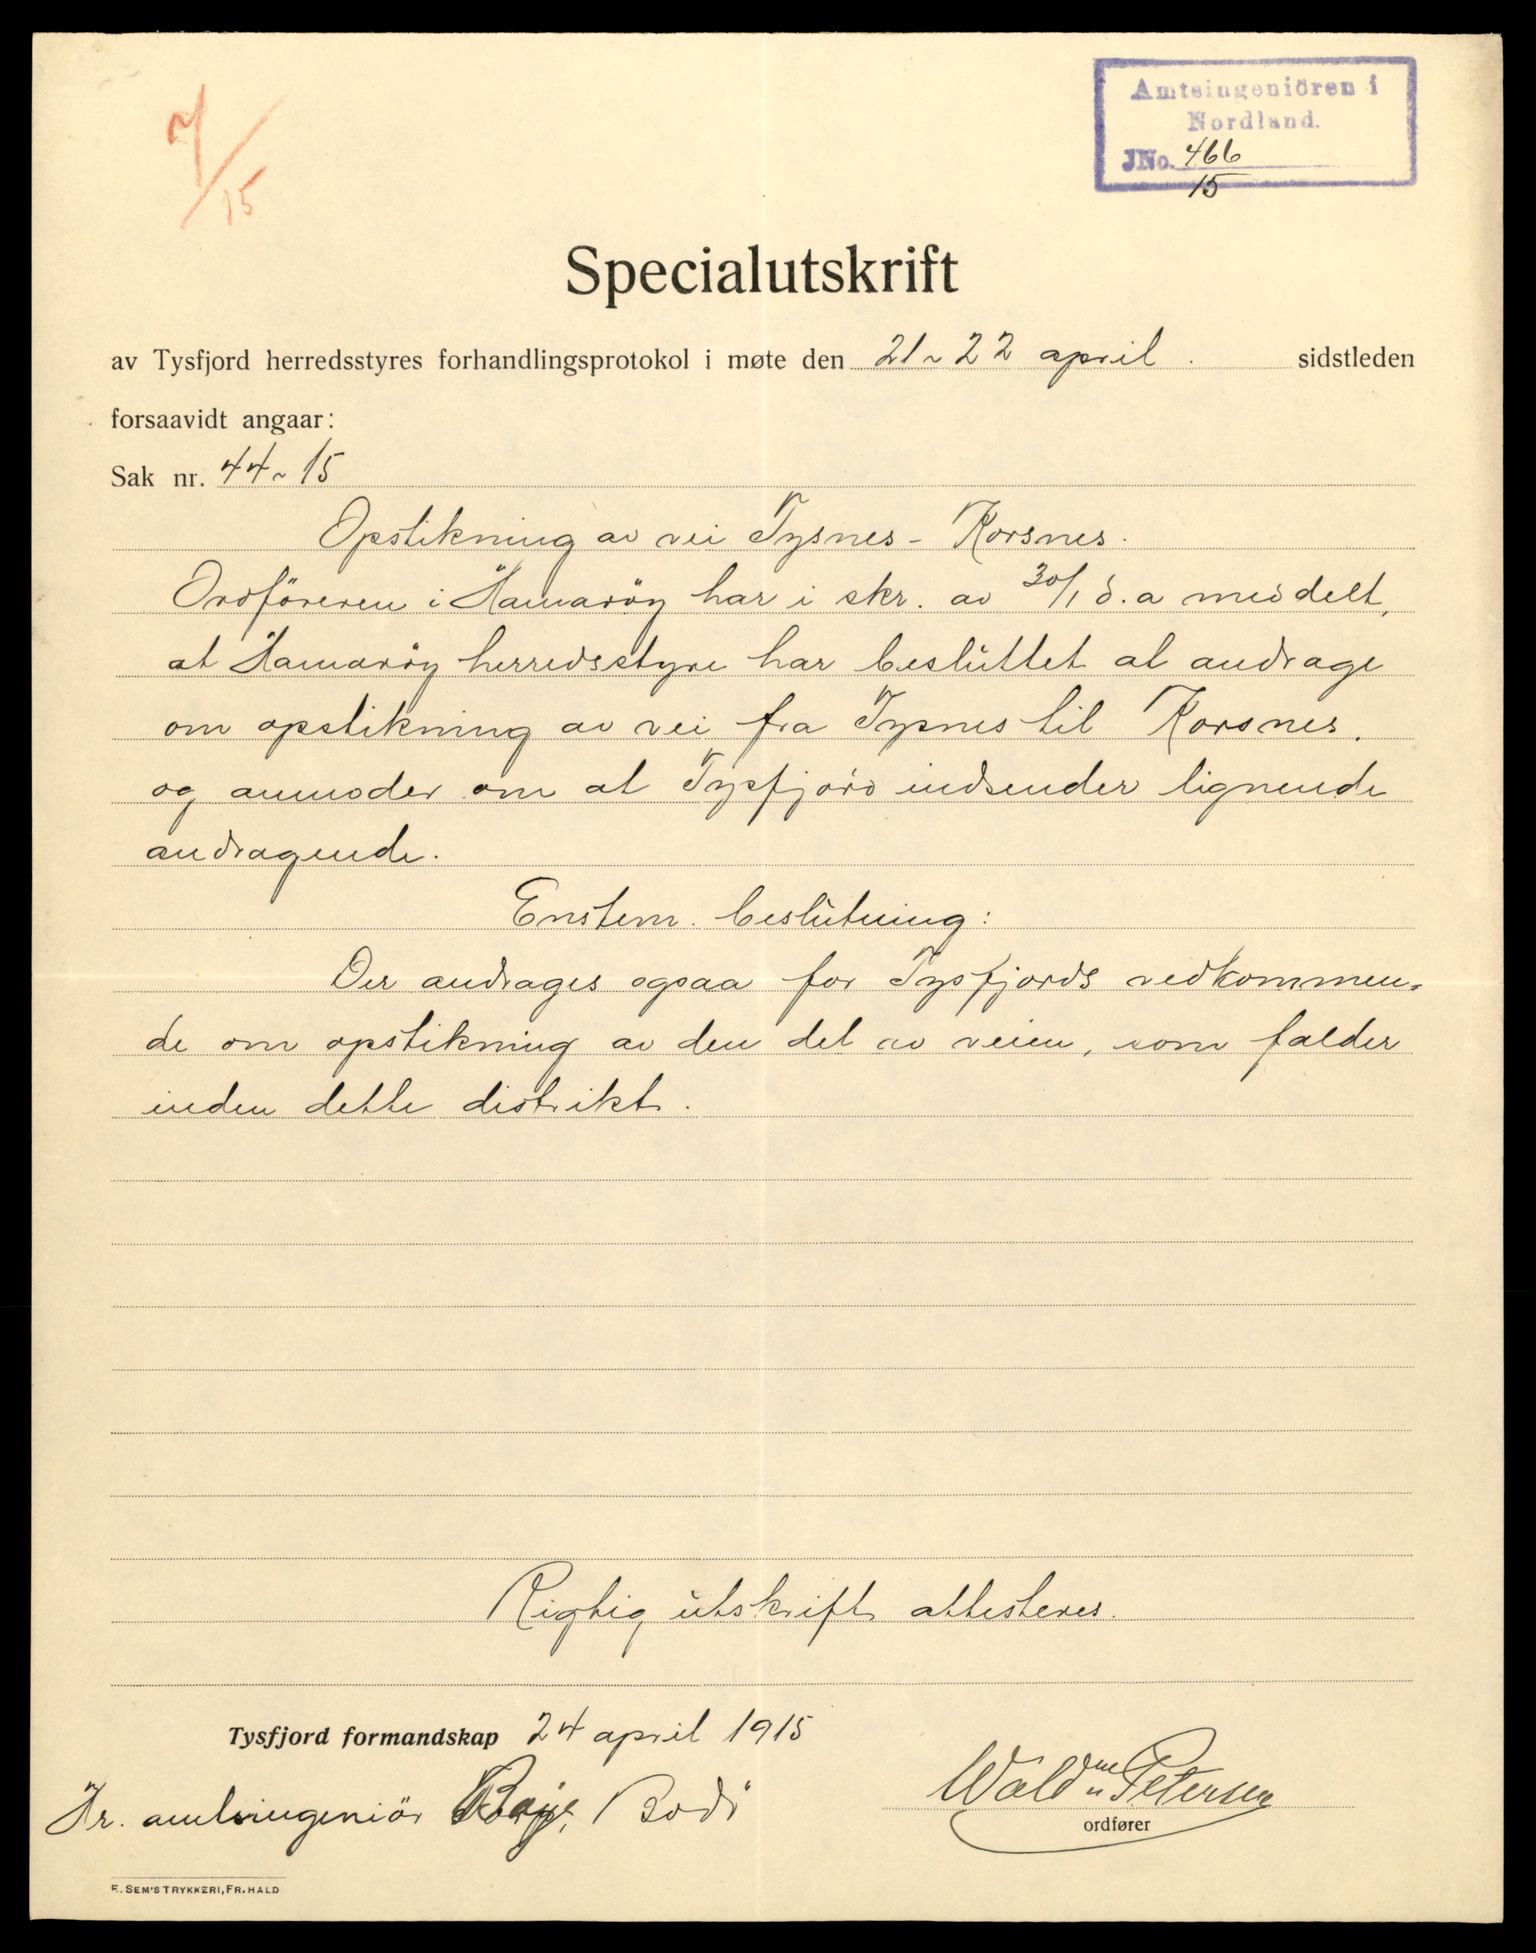 7/15
Amtsingeniören i
Nordland.
JNo. 466
15
Specialutskrift
av Tysfjord herredsstyres forhandlingsprotokol i møte den 21 ~ 22 april. sidstleden
forsaavidt angaar:
Sak nr. 44 ~ 15
Opstikning av vei Tysnes - Korsnes.
Ordföreren i Hamaröy har i skr. av 30/1 d.a meddelt,
at Hamaröy herredsstyre har besluttet at andrage
om opstikning av vei fra Tysnes til Korsnes,
og anmoder om at Tysfjord indsender lignende
andragende.
Enstem. beslutning:
Der andrages ogsaa for Tysfjords vedkommen-
de om opstikning av den del av veien, som falder
inden dette distrikt.
Rigtig utskrift attesteres.
Tysfjord formandskap 24 april 1915
Hr. amtsingeniör Bodö
Wald m Petersen
ordfører
E. SEM'S TRYKKERI, FR.HALD